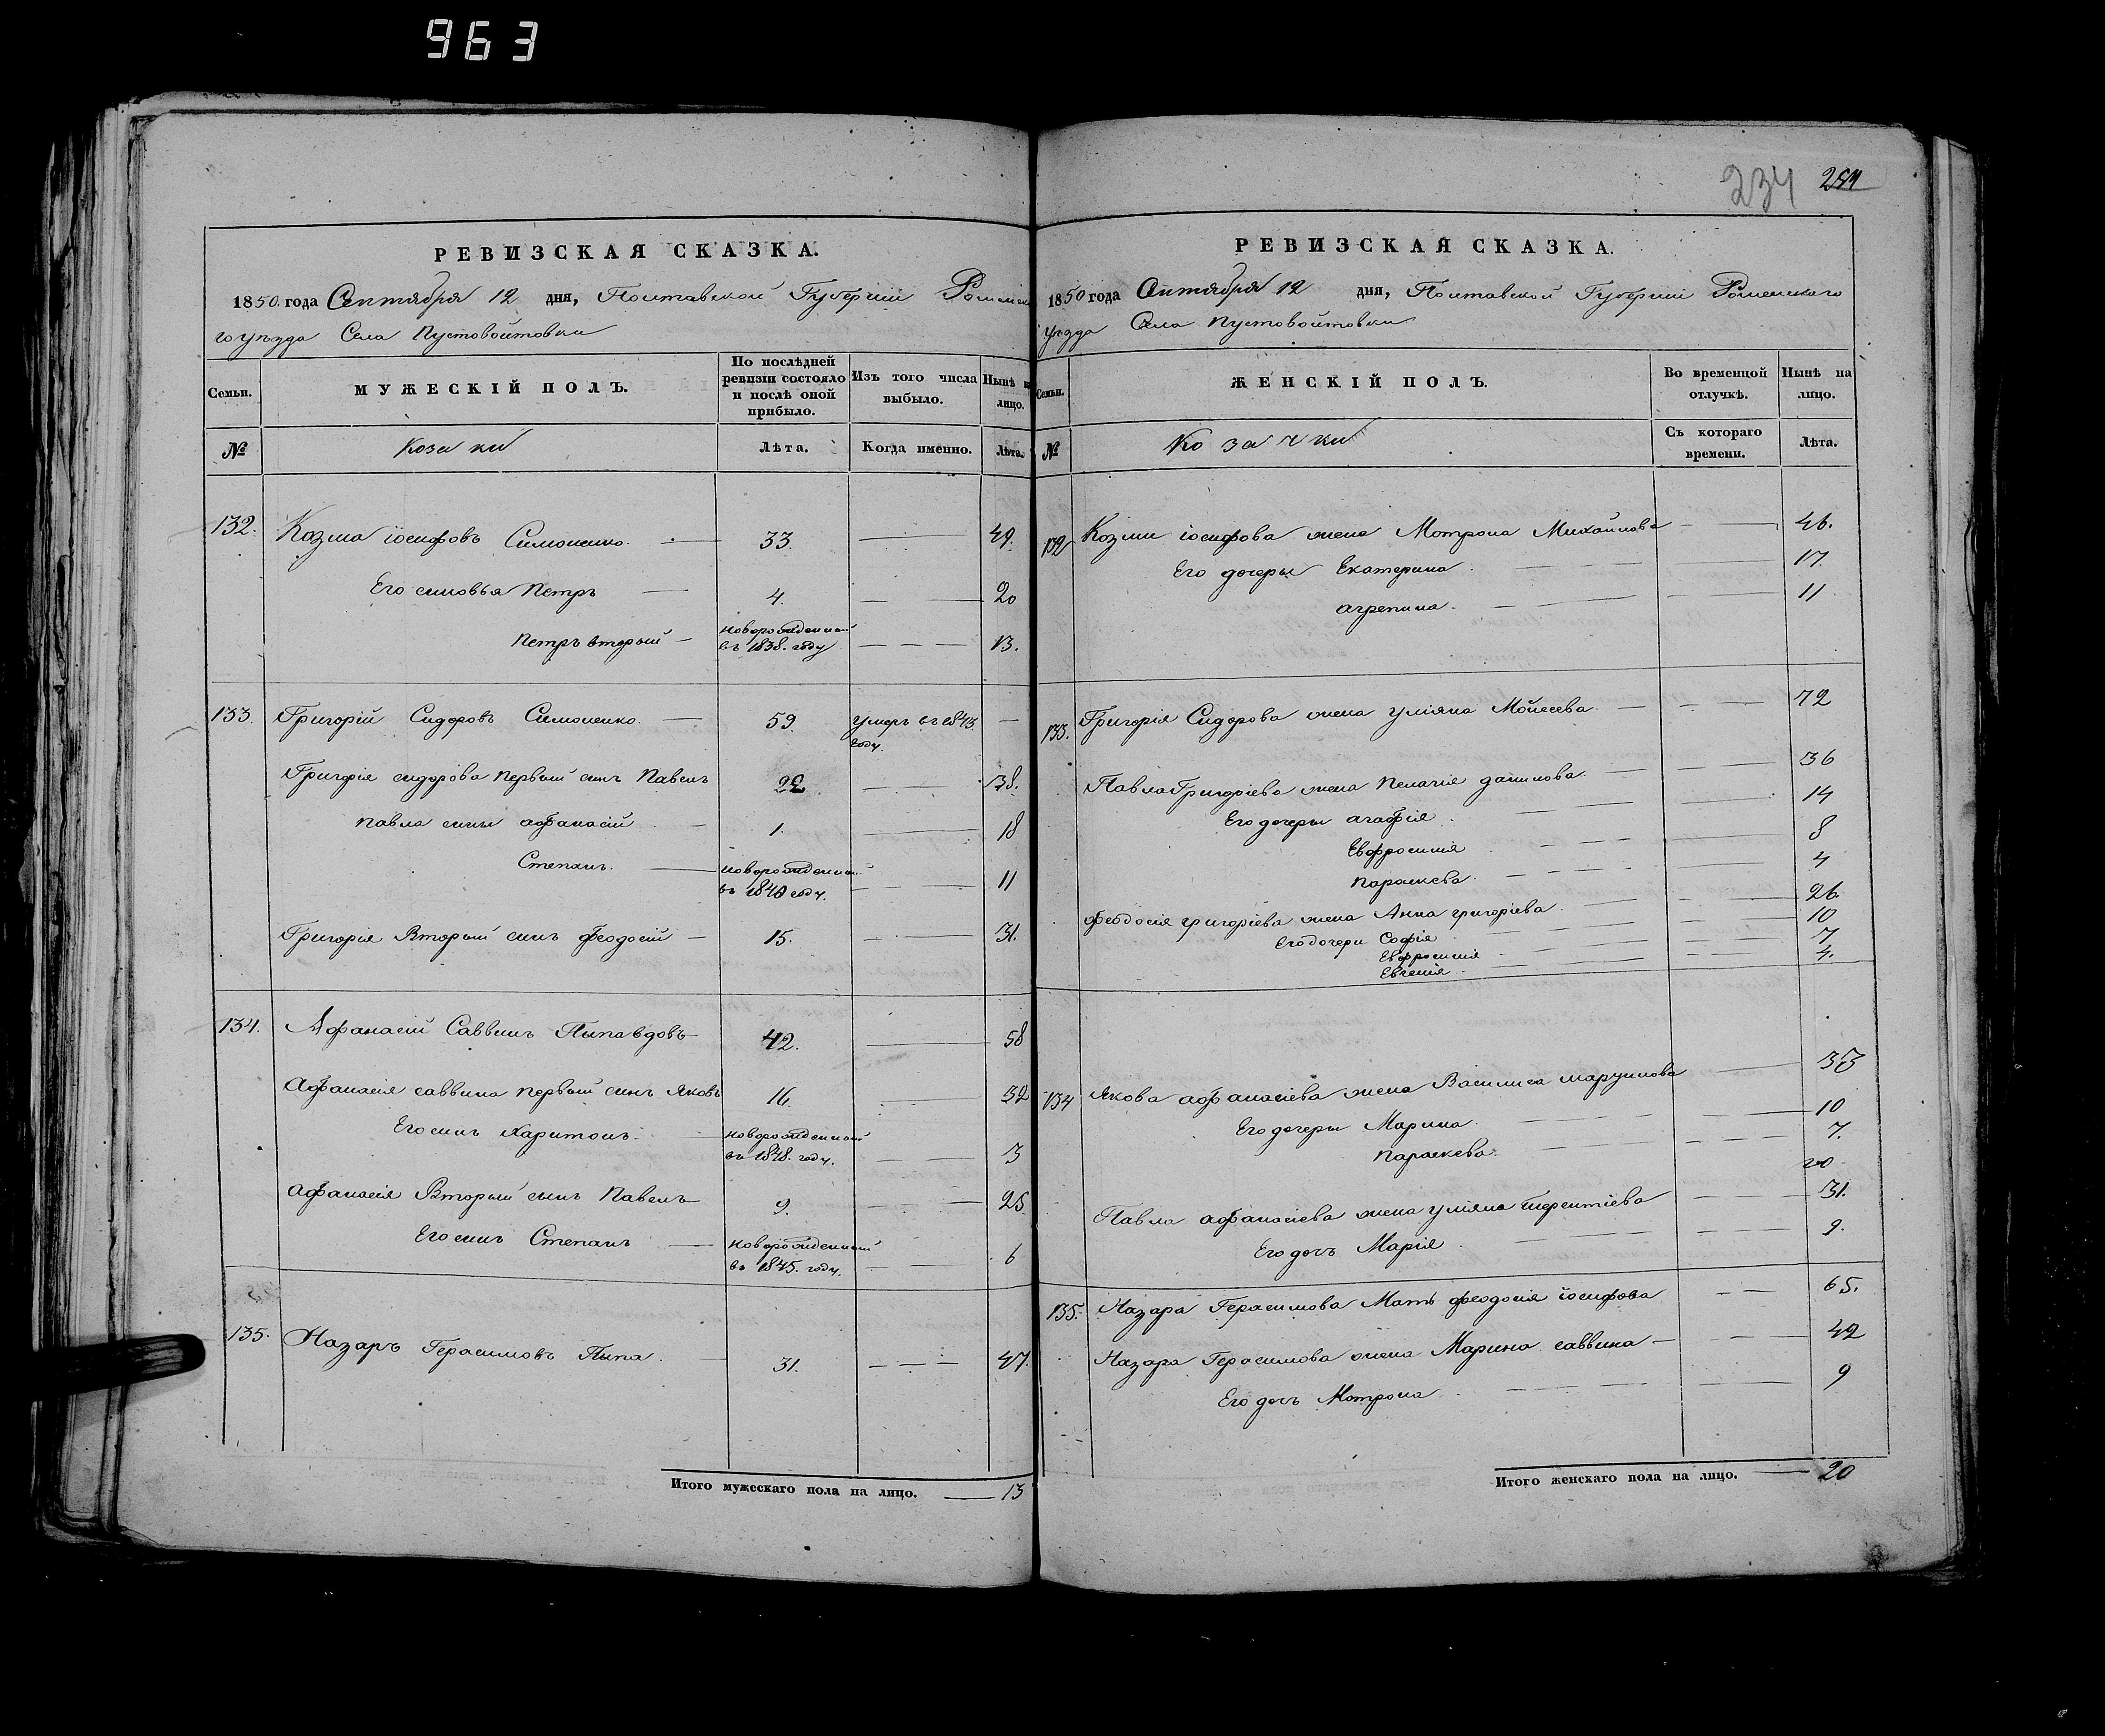 963
234 254
РЕВИЗСКАЯ СКАЗКА.
1850. года Сентября 12 дня, Полтавской Губерніи Роменска
го уѣзда Села Пустовойтовки
Семьи. МУЖЕСКІЙ ПОЛЪ. По послѣдней ревизіи состояло и послѣ оной прибыло. Изъ того числа выбыло. Нынѣ на лицо.
№ Козаки Лѣта. Когда именно. Лѣта.
132. Козма іосифовъ Симоненко. 33. 49.
Его синовья Петръ 4. 20
Петръ вторый новорожденный въ 1838. году 13.
133. Григорій Сидоровъ Симоненко. 59. умеръ въ 1843 году.
Григорія сидорова первый синъ Павелъ 22 38.
Павла сины афанасій 1. 18
Степанъ. новорожденный въ 1840 году. 11
Григорія Вторый синъ феодосій 15. 31.
134. Афанасій Саввинъ Пыпавдовъ 42. 58
Афанасія саввина первый синъ Яковъ 16. 32
Его синъ Харитонъ. новорожденный въ 1848. году. 3
Афанасія Вторый синъ Павелъ 9. 25
Его синъ Степанъ новорожденный въ 1845. году. 6
135. Назаръ Герасимовъ Пыпа. 31. 47.
Итого мужескаго пола на лицо. 13
РЕВИЗСКАЯ СКАЗКА.
1850 года Сентября 12 дня, Полтавской Губерніи Роменскаго
уѣзда Села Пустовойтовки
Семьи. ЖЕНСКІЙ ПОЛЪ. Во временной отлучкѣ. Нынѣ на лицо.
№ Козачки Съ котораго времени. Лѣта.
132 Козми іосифова жена Мотрона Михайлова 46.
Его дочеры Екатерина. 17.
агрепина. 11
133. Григорія Сидорова жена уліяна Моисеева. 72
Павла Григоріева жена Пелагія данилова. 36
Его дочеры агафія 14
Евфросинія 8
Параскева. 4
Феодосія григоріева жена Анна григоріева. 26
Его дочери Софія 10
Евфросинія 7
Евгенія 4.
134 Якова афанасіева жена Василиса марушкова 33
Его дочеры Марина. 10
Параскева. 7.
20
Павла афанасіева жена уліяна терентіева 31.
Его дочъ Марія 9.
135. Назара Герасимова Мать феодосія іосифова 65.
Назара Герасимова жена Марина саввина 42
Его дочъ Мотрона 9
Итого женскаго пола на лицо. 20